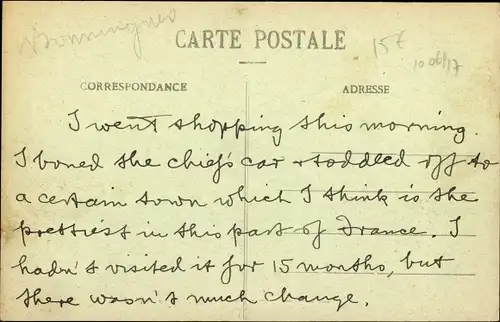 CARTE POSTALE
15€
10 06/17
CORRESPONDANCE
ADRESSE
I went shopping this morning.
I boned the chief's car & toddled off to
a certain town which I think is the
prettiest in this part of France. I
hadn't visited it for 15 months, but
there wasn't much change.